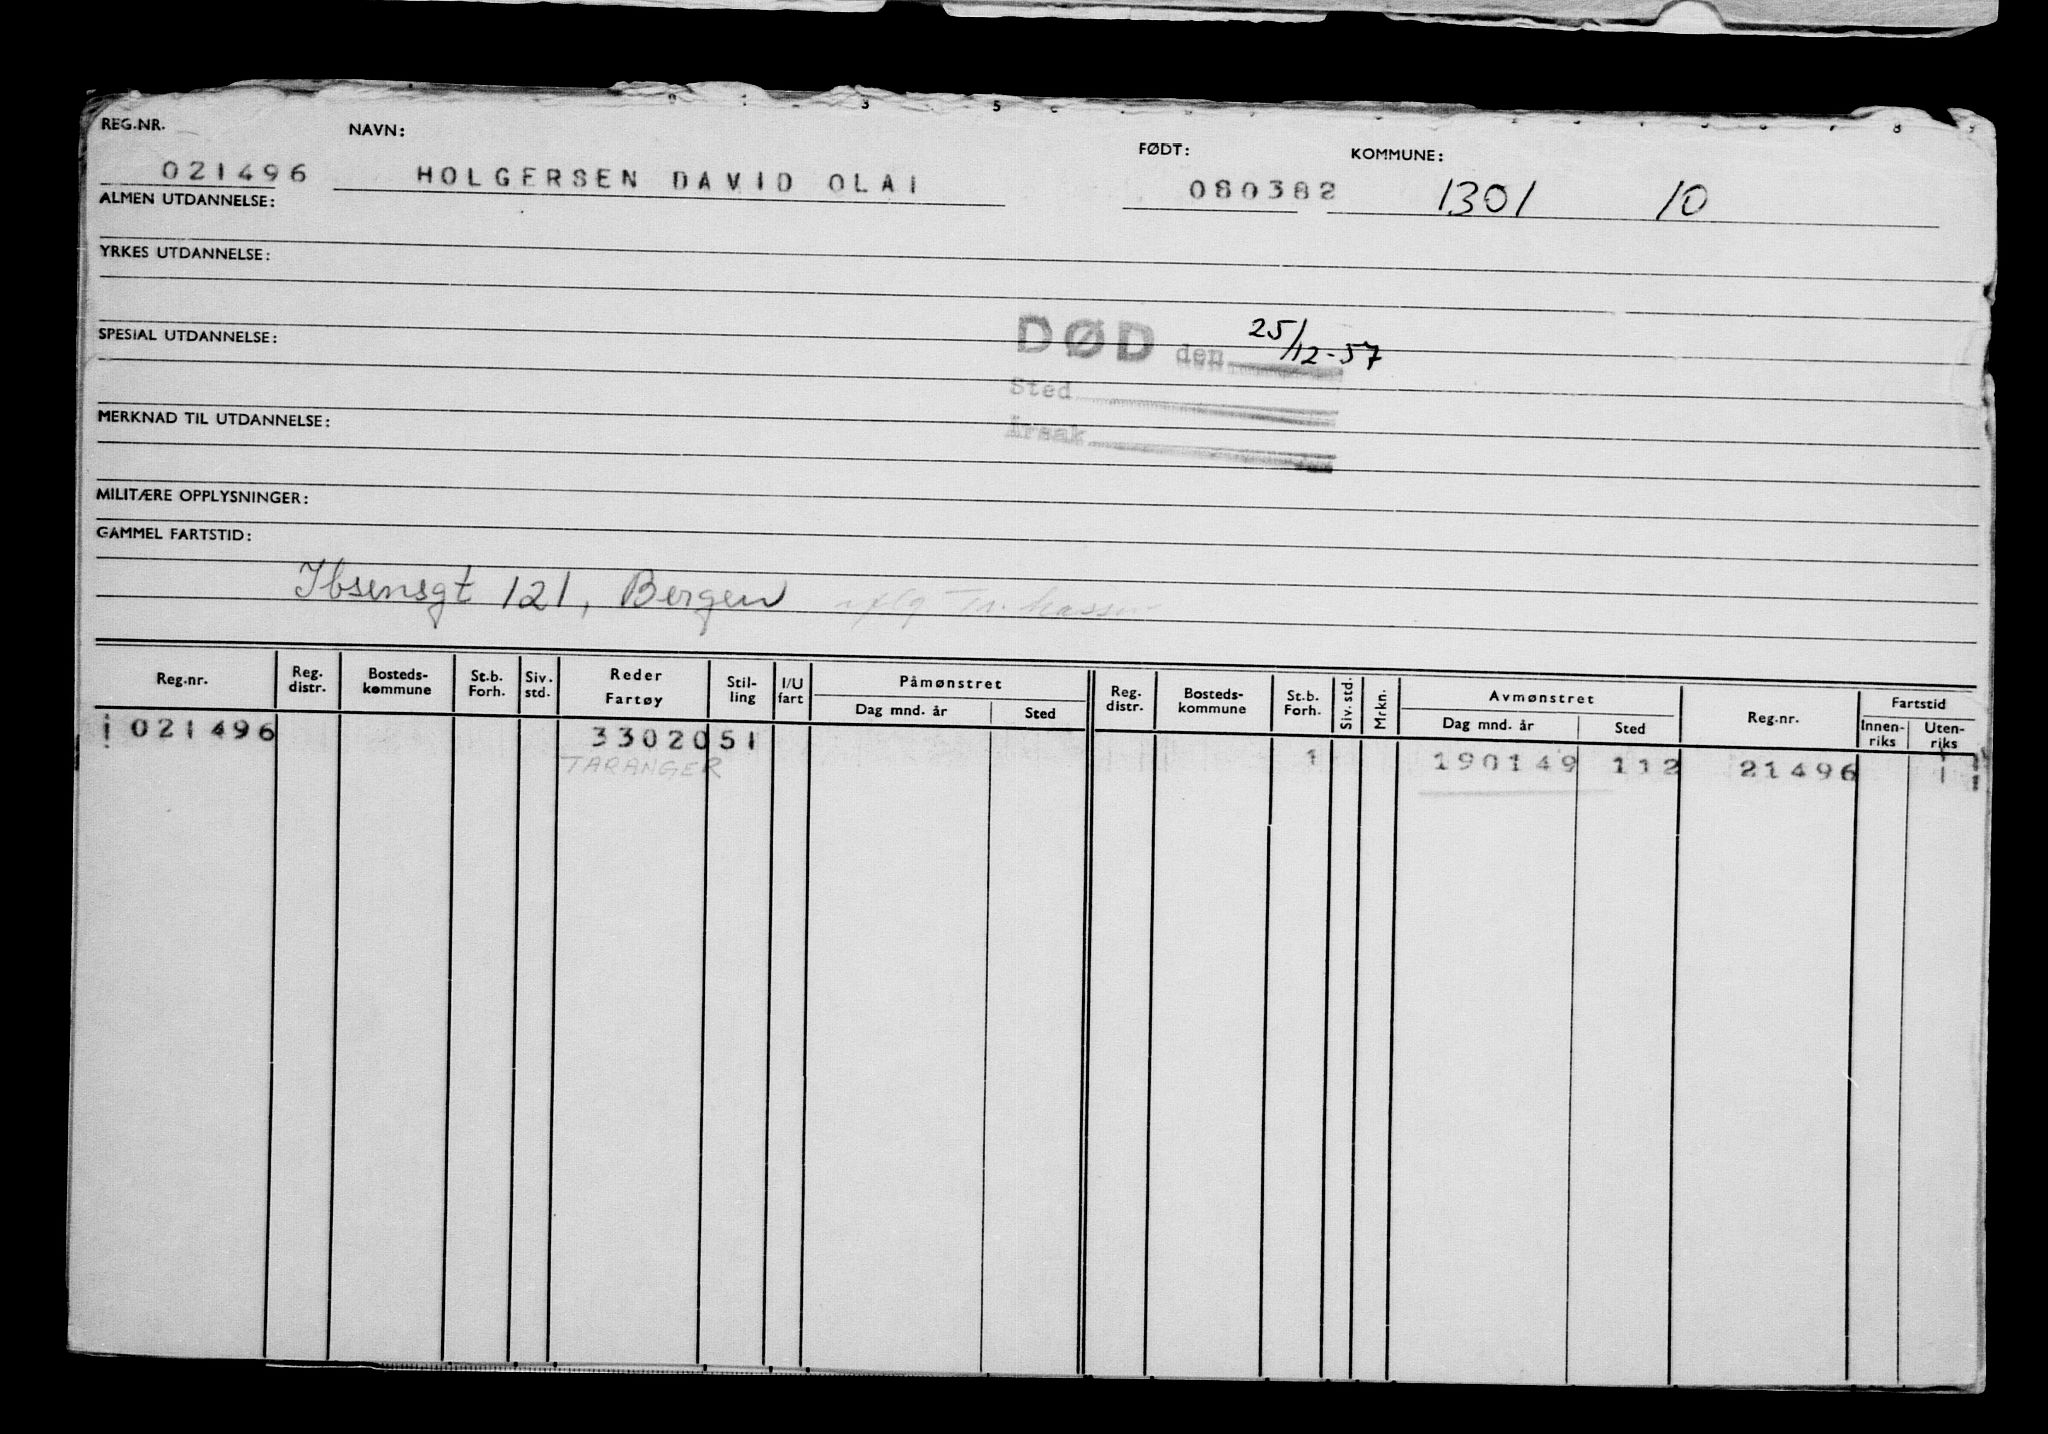 REG.NR. NAVN: FØDT: KOMMUNE:
021496 HOLGERSEN DAVID OLAI 080382 1301 10
ALMEN UTDANNELSE:
YRKES UTDANNELSE:
SPESIAL UTDANNELSE:
DØD den 25/12-57
Sted
Årsak
MERKNAD TIL UTDANNELSE:
MILITÆRE OPPLYSNINGER:
GAMMEL FARTSTID:
Ibsensgt 121, Bergen
Reg.nr. Reg. distr. Bosteds- kommune St.b. Forh. Siv. std. Reder Fartøy Stil- ling I/U fart Påmønstret Dag mnd. år Sted Reg. distr. Bosteds- kommune St.b. Forh. Siv. std. Mrkn. Avmønstret Dag mnd. år Sted Reg.nr. Fartstid Innen- riks Uten- riks
021496 3302051 1 190149 112 21496
TARANGER